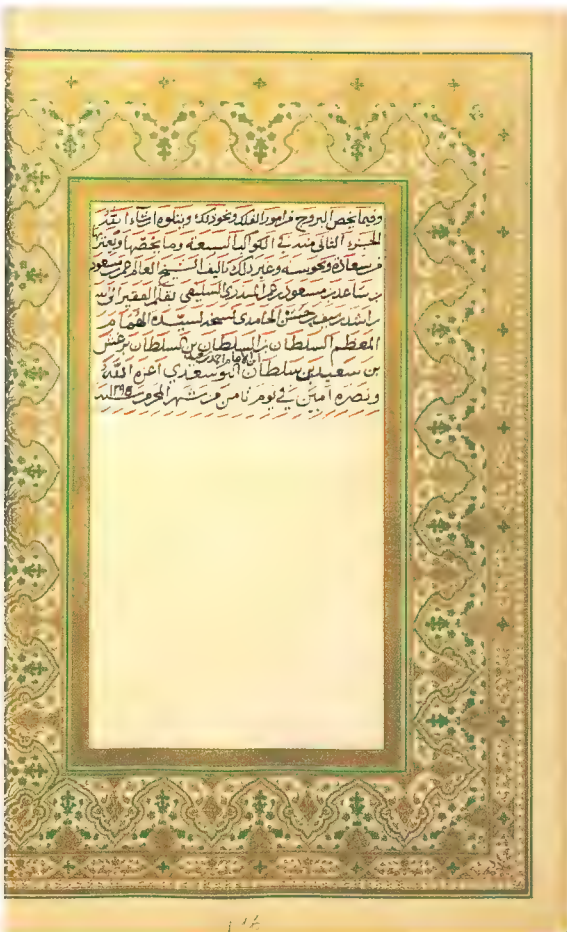 وفيما يخص البروج من امور الفلك ونحو ذلك ويتلوه ان شاء الله
الجزء الثاني منه في الكواكب السبعة وما يخصها ويعتريها
من سعادة ونحوسة وغير ذلك تاليف الشيخ العالم عمر بن مسعود
بن ساعد بن مسعود بن عمر المنذري السليفي بقلم الفقير لله
راشد بن سيف حسن الحامدي نسخه لسيده الهمام
المعظم السلطان بن السلطان بن السلطان برغش
بن سعيد بن سلطان ابن الامام احمد بن سعيد البوسعيدي اعزه الله
ونصره امين في يوم ثامن من شهر المحرم سنة ١٢٩٥